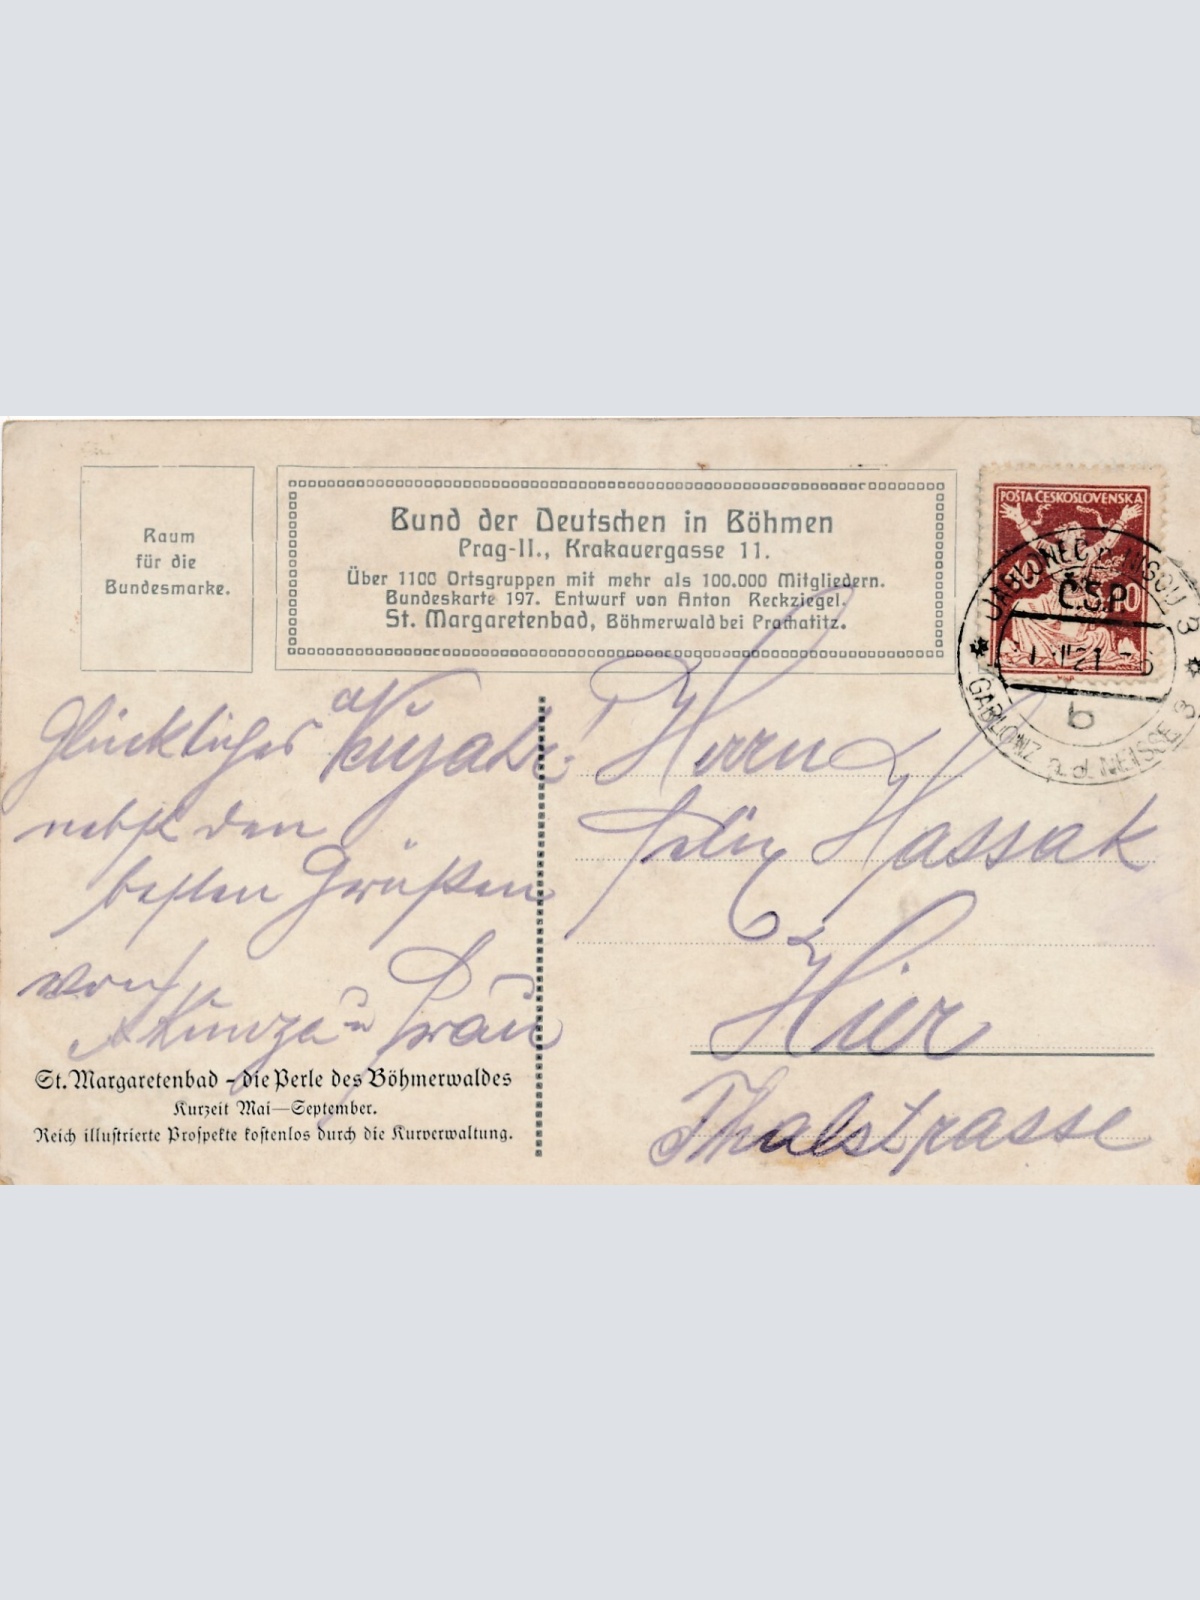 Raum
für die
Bundesmarke.
Bund der Deutschen in Böhmen
Prag-II., Krakauergasse 11.
Über 1100 Ortsgruppen mit mehr als 100.000 Mitgliedern.
Bundeskarte 197. Entwurf von Anton Reckziegel.
St. Margaretenbad, Böhmerwald bei Prachatitz.
POŠTA ČESKOSLOVENSKÁ
JABLONEC n. NISOU 3
Č.S.P.
21 -6
b
GABLONZ a. d. NEISSE 3
Glückliches Neujahr
nebst den
besten Grüßen
von
Frau
St. Margaretenbad - die Perle des Böhmerwaldes
Kurzeit Mai—September.
Reich illustrierte Prospekte kostenlos durch die Kurverwaltung.
Herrn
Felix Hassak
Hier
Thalstrasse